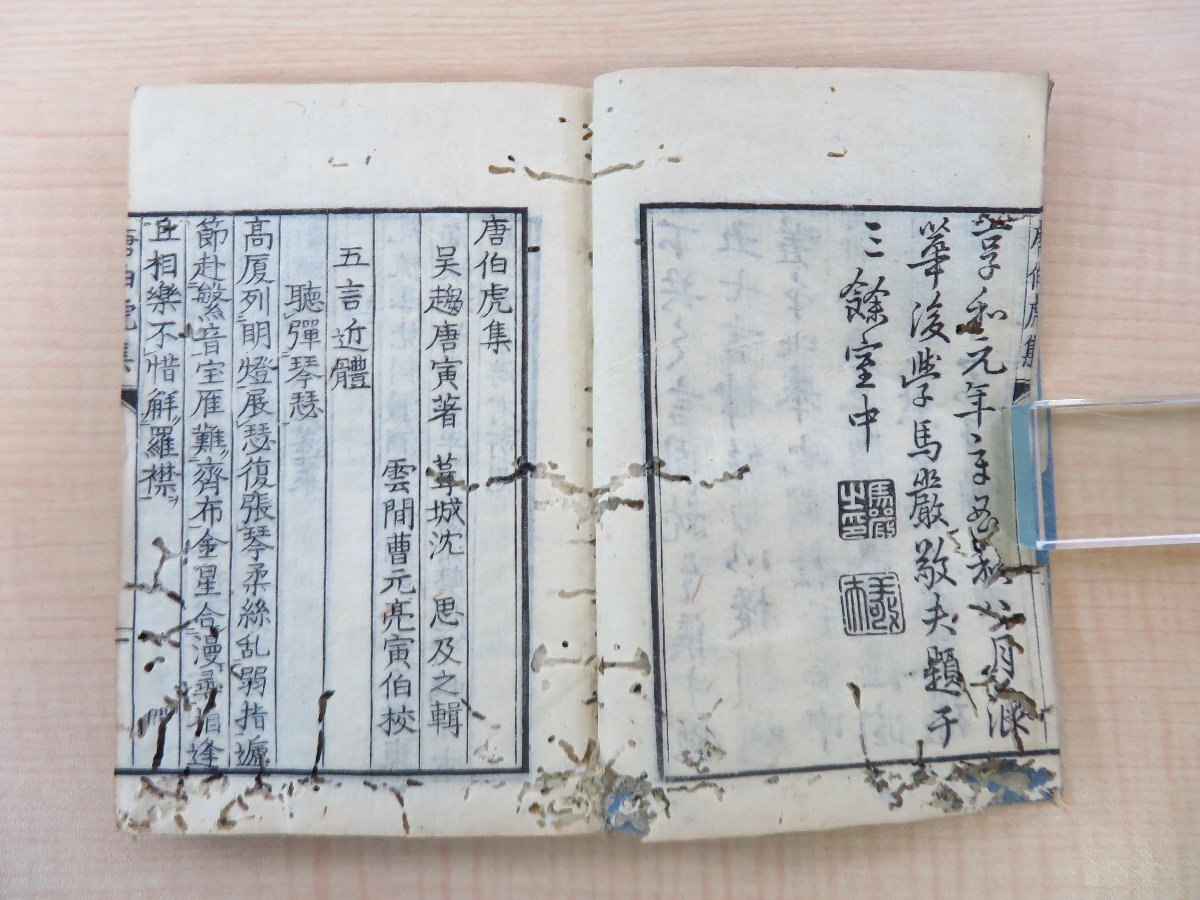 享和元年辛酉 八月
華後學馬嚴敬夫題于
三餘室中
馬嚴之印
唐伯虎集
唐伯虎集
吴趨唐寅著 葺城沈 思及之輯
雲間曹元亮寅伯校
五言近體
聽彈琴瑟
高厦列明燈展瑟復張琴柔絲乱弱指遞
節赴繁音宝雁難齊布金星合漫尋相逢
且相樂不惜解羅襟
唐伯虎集